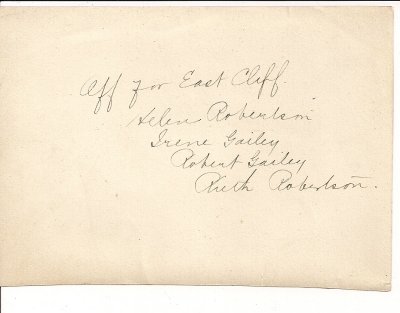 Off for East Cliff.
Helen Robertson
Irene Gailey
Robert Gailey
Ruth Robertson.